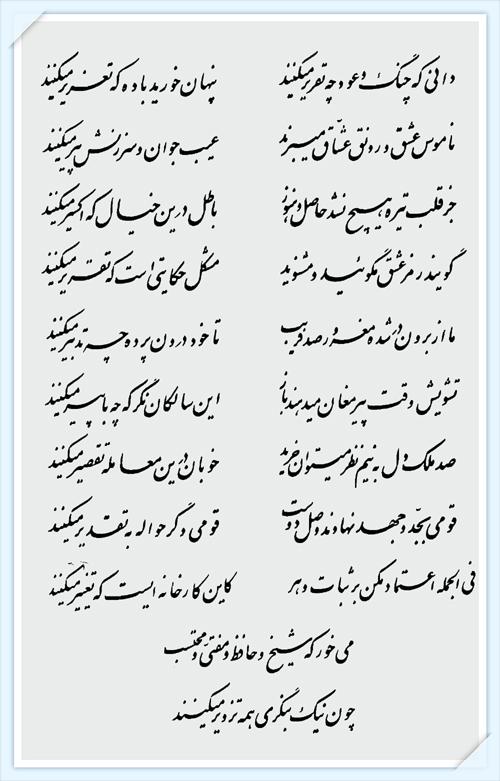 دانی که چنگ و عود چه تقریر میکنند پنهان خورید باده که تعزیر میکنند
ناموس عشق و رونق عشاق میبرند عیب جوان و سرزنش پیر میکنند
جز قلب تیره هیچ نشد حاصل و هنوز باطل درین خیال که اکسیر میکنند
گویند رمز عشق مگوئید و مشنوید مشکل حکایتی است که تقریر میکنند
ما از برون در شده مغرور صد فریب تا خود درون پرده چه تدبیر میکنند
تشویش وقت پیر مغان میدهند باز این سالکان نگر که چه با پیر میکنند
صد ملک دل به نیم نظر میتوان خرید خوبان درین معامله تقصیر میکنند
قومی بجد و جهد نهادند وصل دوست قومی دگر حواله به تقدیر میکنند
فی الجمله اعتماد مکن بر ثبات دهر کاین کارخانه ایست که تغییر میکنند
می خور که شیخ و حافظ و مفتی و محتسب
چون نیک بنگری همه تزویر میکنند